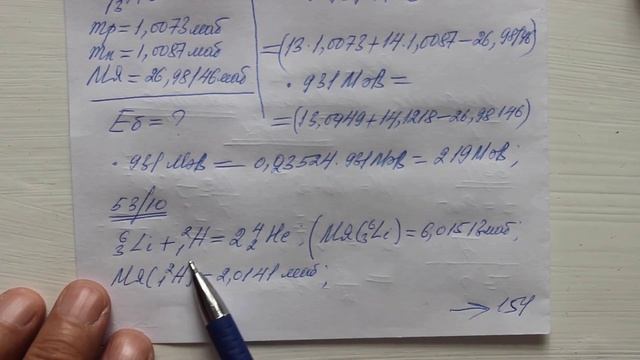 13
mp = 1,0073 маб
mн = 1,0087 маб
Mя = 26,98146 маб
= (13·1,0073+14·1,0087-26,98146)
· 931 МэВ =
Eб = ?
= (13,0949+14,1218-26,98146)
· 931 МэВ = 0,23524·931 МэВ = 219 МэВ;
53/10
⁶₃Li + ²₁H = 2 ⁴₂He; (Mя(⁶₃Li) = 6,01513 маб;
Mя(²₁H) = 2,0141 маб;
→ 154